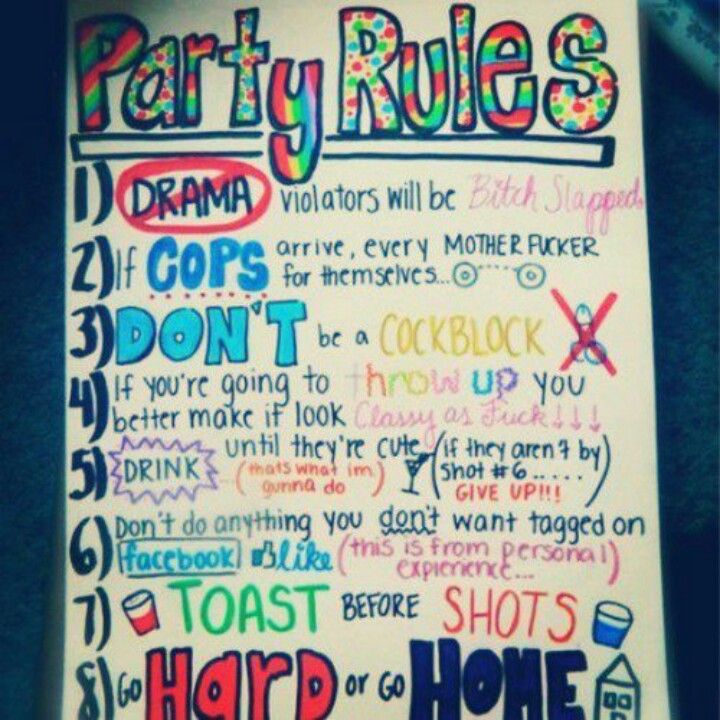 Party Rules
1) DRAMA violators will be Bitch Slapped
2) If COPS arrive, every MOTHER FUCKER
for themselves...
3) DON'T be a COCKBLOCK
4) If you're going to throw up you
better make it look Classy as Fuck!!!
5) DRINK until they're cute (if they aren't by
...(thats what im Shot #6.....
gunna do) GIVE UP!!!)
6) Don't do anything you don't want tagged on
facebook like (this is from personal
expierence...)
7) TOAST BEFORE SHOTS
8) GO HARD or GO HOME